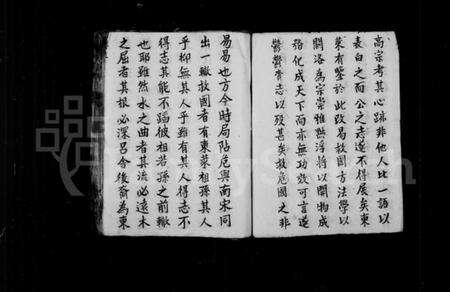 高宗考其心跡非他人比一語以
表白之而公之志遂不得展矣東
萊有鑒於此改易救國方法學以
關洛為宗崇惟黜浮將以開物成
務化成天下而亦無功效可言遂
鬱鬱賫志以歿甚矣救危國之非
易易也方今時局阽危與南宋同
出一轍救國者有東萊祖孫其人
乎抑無其人乎雖有其人得志不
得志其能不蹈彼祖若孫之前轍
也耶雖然水之曲者其流必遠木
之屈者其根必深呂合後裔為東